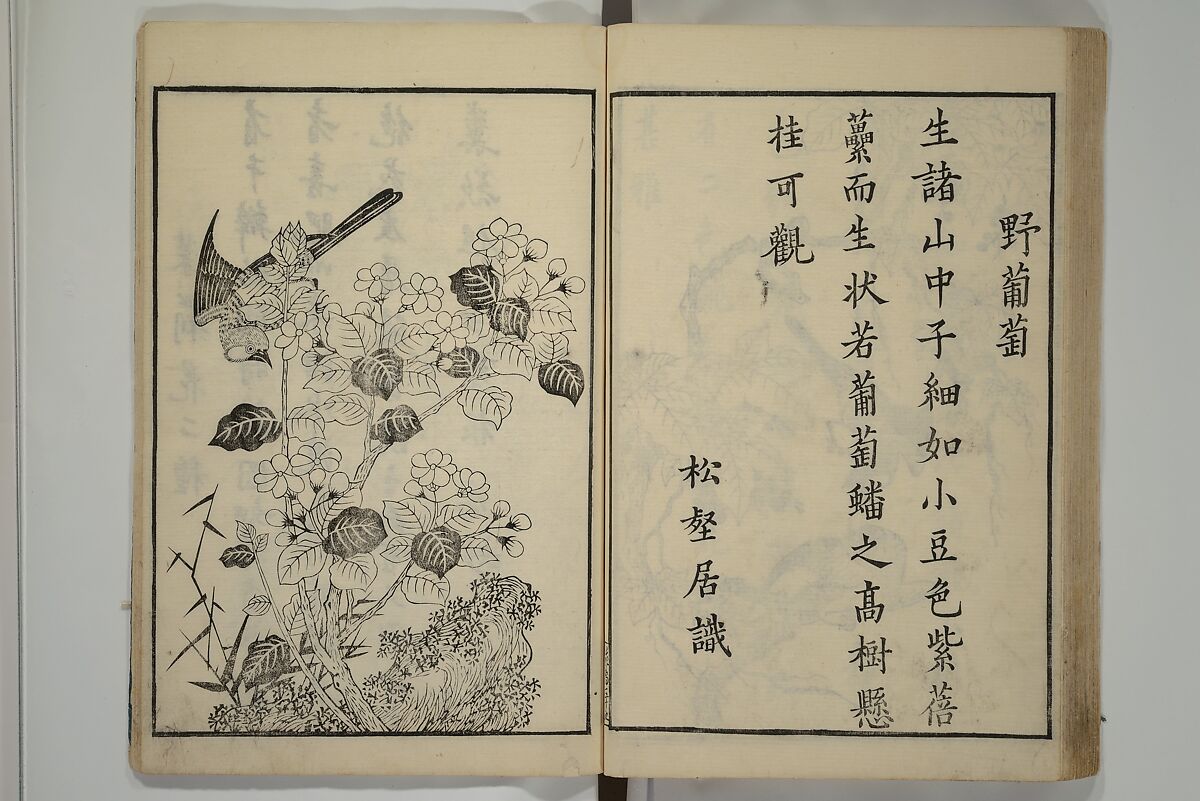 野葡萄
生諸山中子細如小豆色紫蓓
蘽而生状若葡萄蟠之髙樹懸
挂可觀
松壑居識